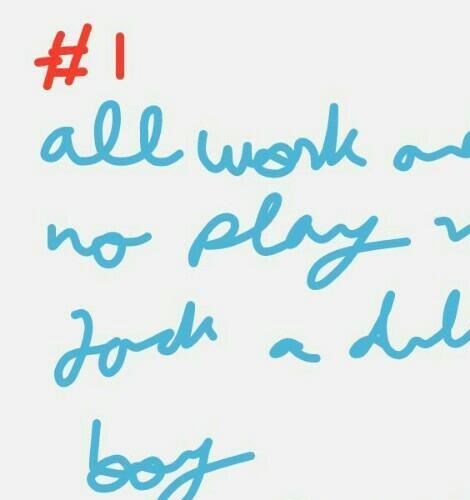 #1
all work
no play
Jack a dul
boy